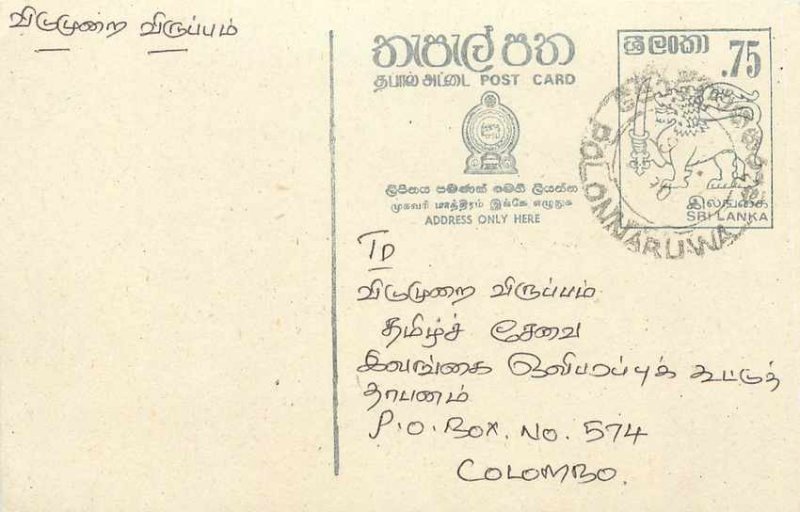 விடுமுறை விருப்பம்
තැපැල් පත
தபால் அட்டை POST CARD
ශ්‍රී ලංකා
.75
ලිපිනය පමණක් මෙහි ලියන්න
முகவரி மாத்திரம் இங்கே எழுதுக
ADDRESS ONLY HERE
இலங்கை
SRI LANKA
POLONNARUWA
To
விடுமுறை விருப்பம்
தமிழ்ச் சேவை
இலங்கை ஒலிபரப்புக் கூட்டுத்
தாபனம்
P.O.Box. No. 574
COLOMBO.